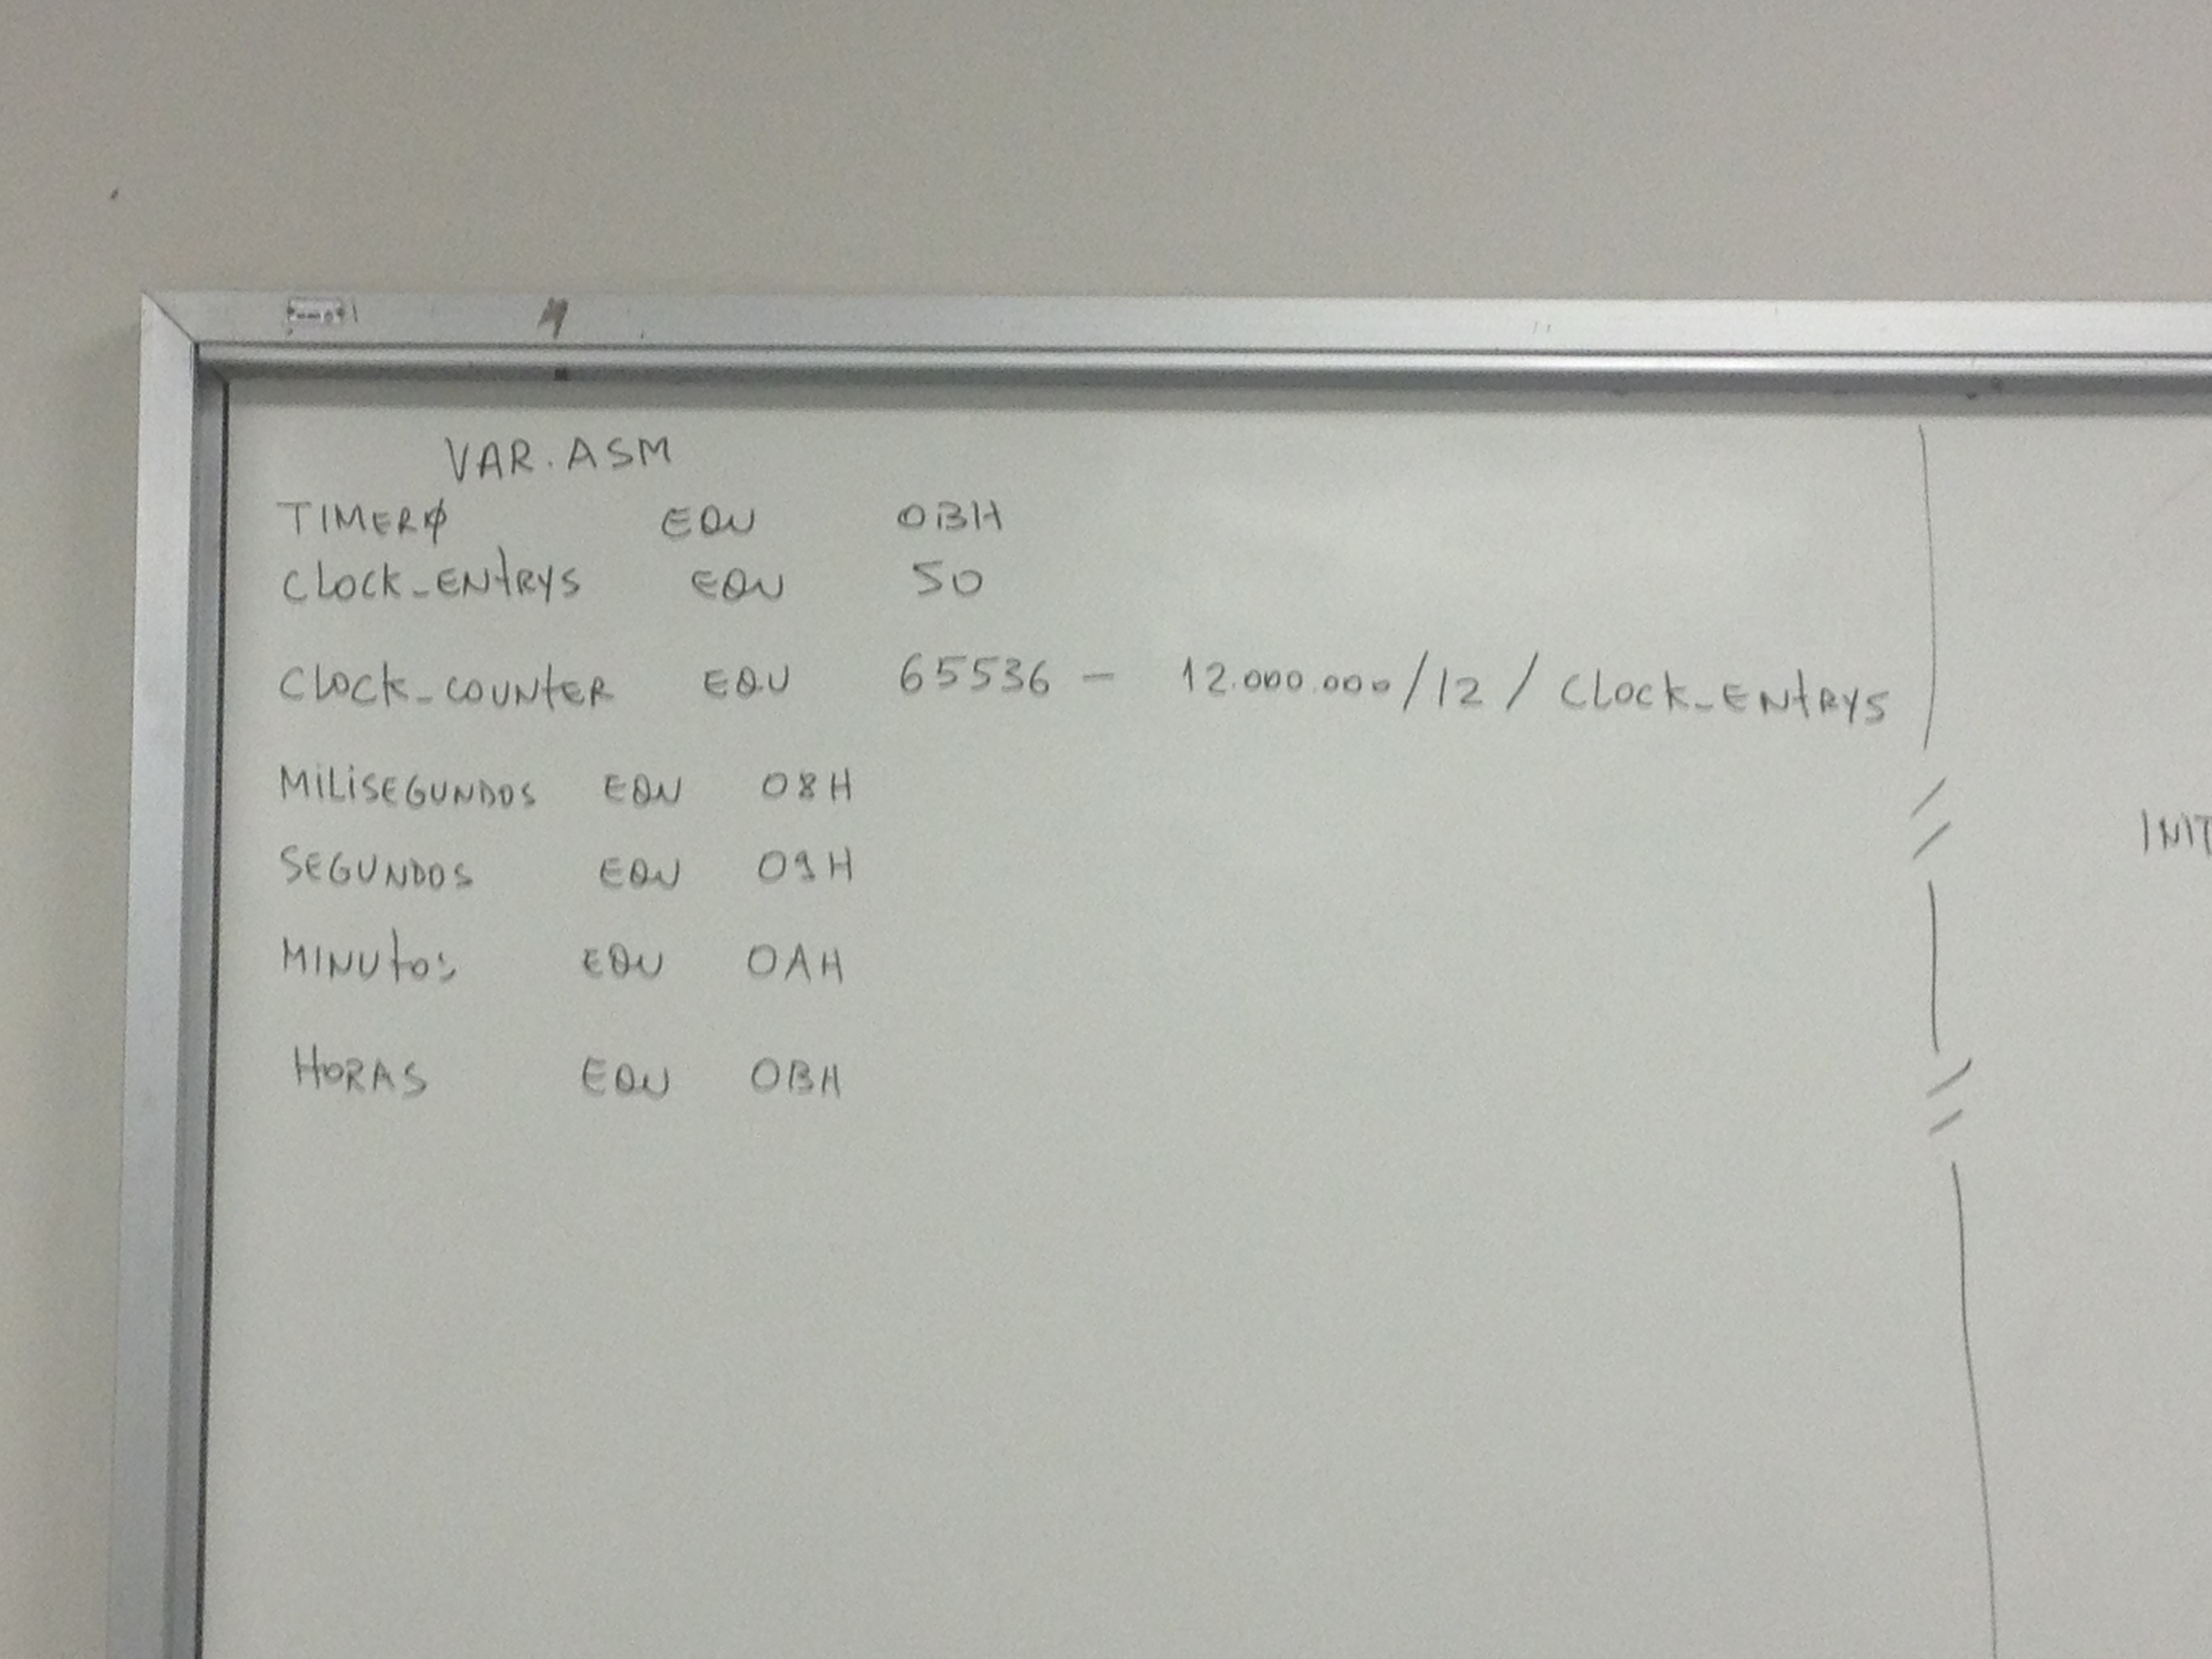 VAR.ASM
TIMER0 EQU 0BH
CLOCK_ENTRYS EQU 50
CLOCK_COUNTER EQU 65536 - 12.000.000/12 / CLOCK_ENTRYS
MILISEGUNDOS EQU 08H
SEGUNDOS EQU 09H
INIT
MINUTOS EQU 0AH
HORAS EQU 0BH